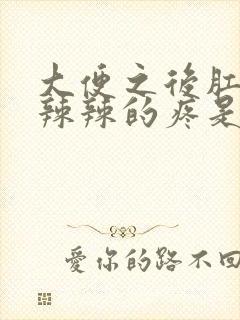 大便之後肛
辣辣的疼是
愛你的路不回